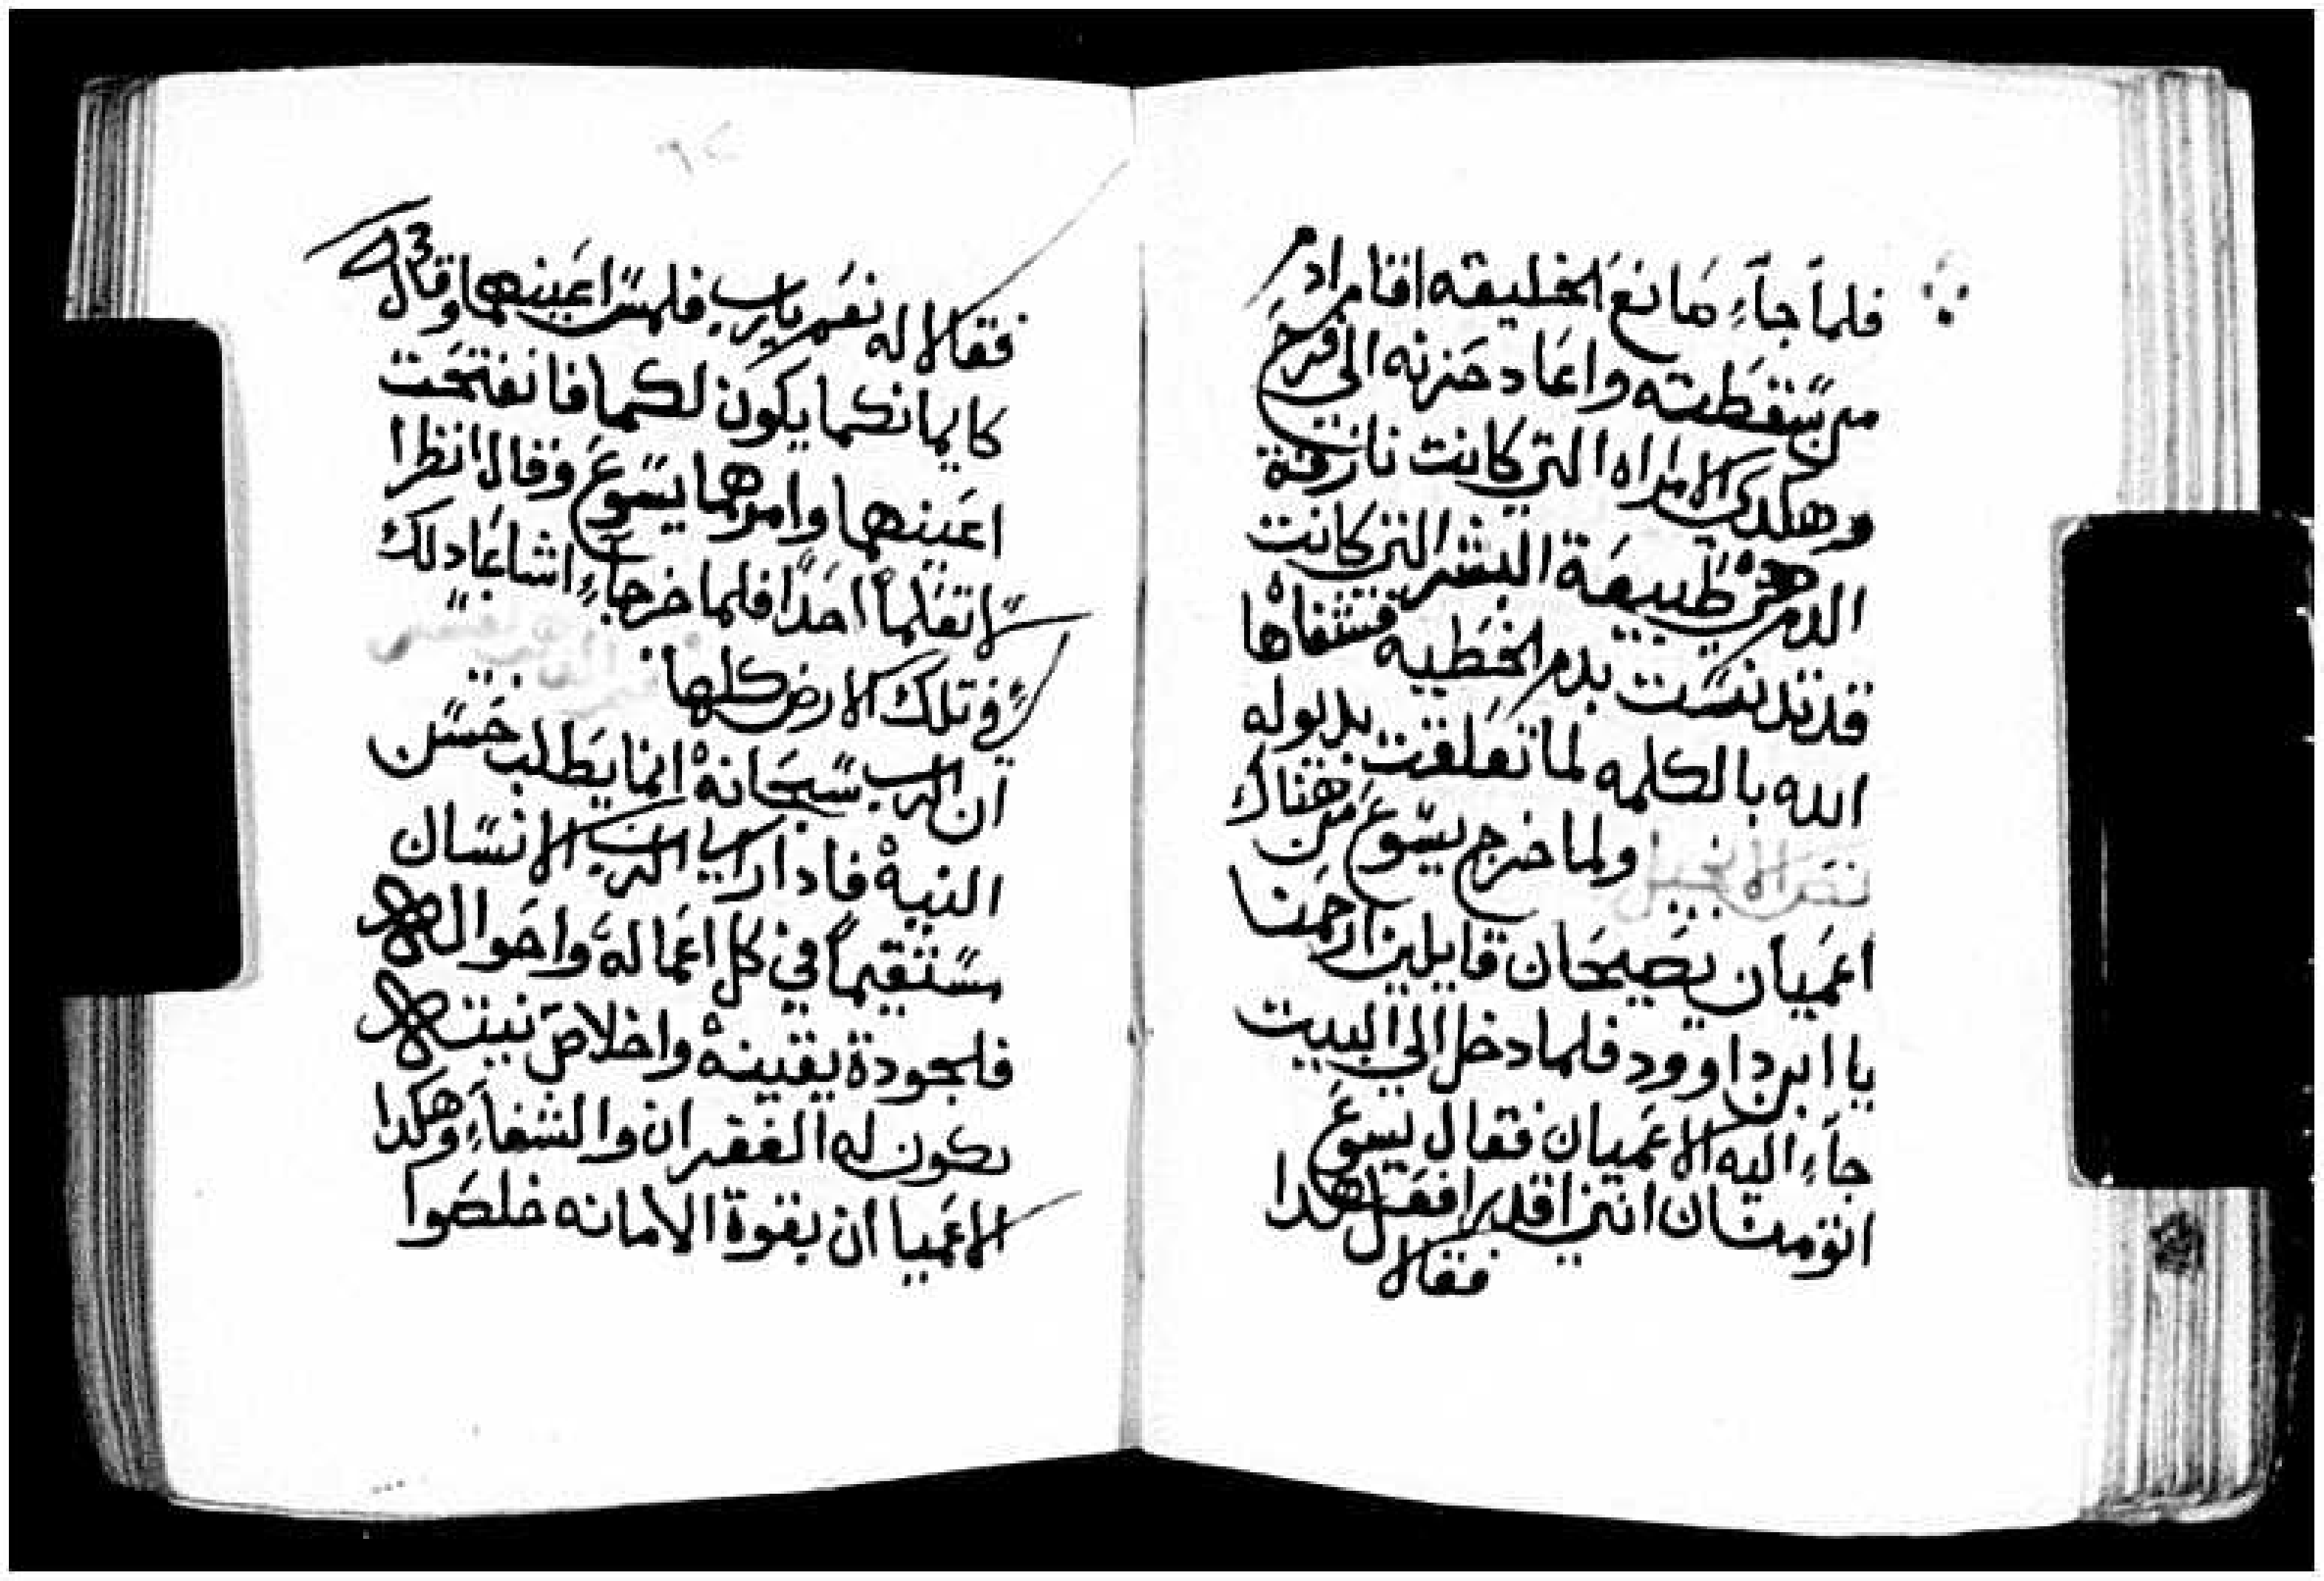 فلما جاء صانع الخليقه اقام ادم
من سقطته واعاد حزنه الى فرح
وهكدى الامراه التي كانت نازفة
الدم هى طبيعة البشر التى كانت
قد تدنست بدم الخطيه فشفاها
الله بالكلمه لما تعلقت بديوله
نص الانجيل ولما خرج يسوع من هناك
اعميان يصيحان قايلين ارحمنا
يا ابن داوود فلما دخل الي البيت
جاء اليه الاعميان فقال يسوع
اتومنان انني اقدر افعل هدا
فقالا
٩٢
93
فقالا له نعم يارب فلمس اعينهما وقال
كايمانكما يكون لكما فانفتحت
اعينهما وامرهما يسوع وقال انظرا
لا تعلما احدا فلما خرجا اشاعا دلك
في تلك الارض كلها
ان الرب سبحانه انما يطلب حسن
النيه فادا راي الرب الانسان
مستقيما في كل اعماله واحواله
فلجودة يقينه واخلاص نيته
يكون له الغفران والشفاء وهكدا
الاعميان بقوة الامانه خلصوا